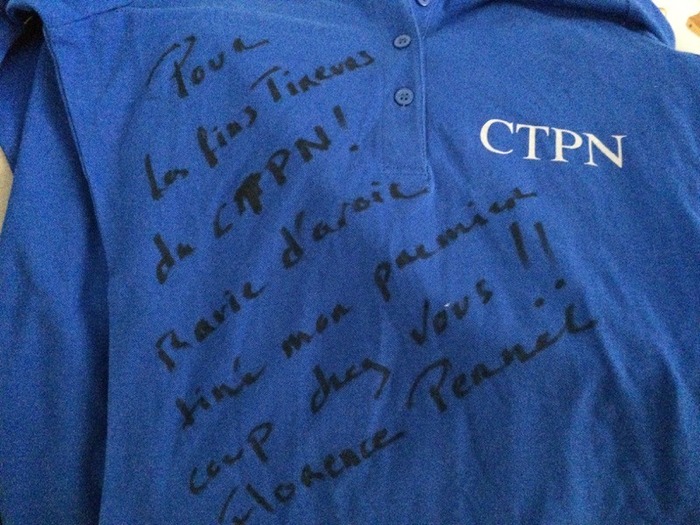 Pour
les fins Tireurs
du CTPN!
Ravie d'avoir
tiré mon premier
coup chez vous !!
Florence Pernel
CTPN